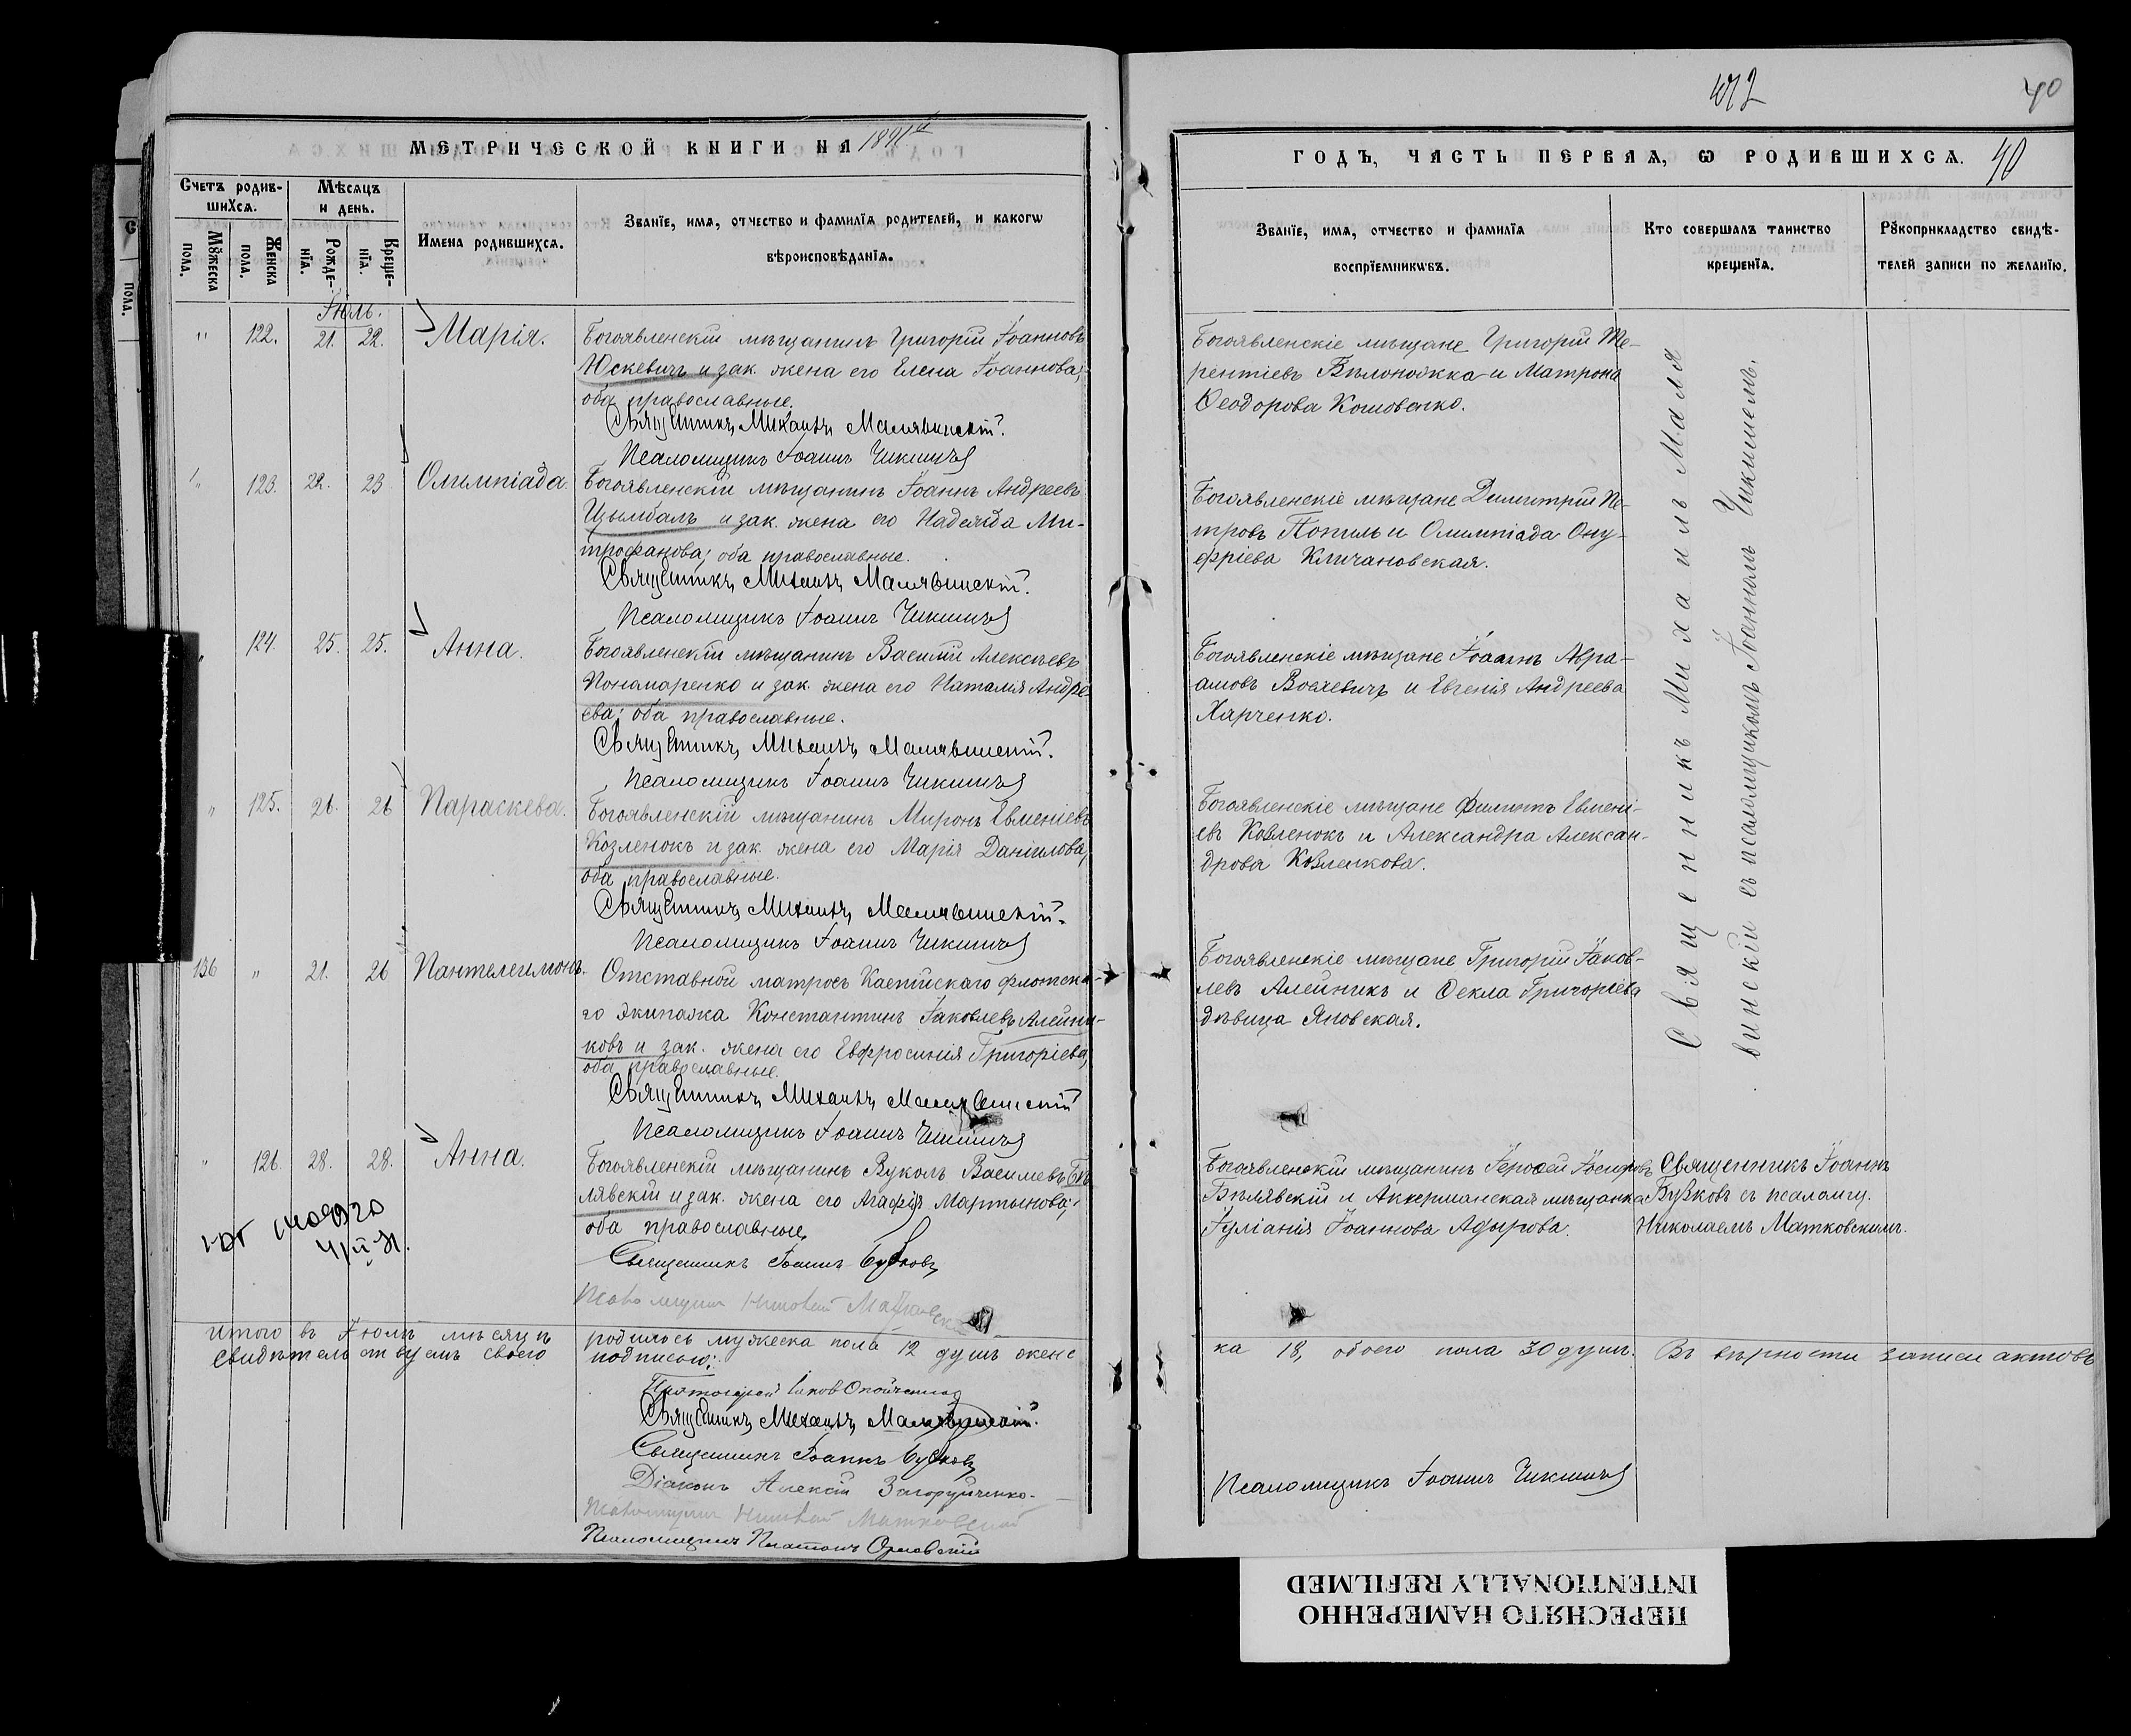 412
40
МЕТРИЧЕСКОЙ КНИГИ НА 1891й
ГОДЪ, ЧАСТЬ ПЕРВАЯ, Ѡ РОДИВШИХСЯ.
40
Счетъ родив-
шихся.
Мѣсяцъ
и день.
Мꙋжеска
пола.
Женска
пола.
Рожде-
нія.
Креще-
нія.
Имена родившихся.
Званіе, имя, отчество и фамилія родителей, и какогѡ
вѣроисповѣданія.
Званіе, имя, отчество и фамилія
воспріемникѡвъ.
Кто совершалъ таинство
крещенія.
Рꙋкоприкладство свидѣ-
телей записи по желанію.
Іюль.
" 122. 21. 22. Марія.
Богоявленскій мѣщанинъ Григорій Іоанновъ
Юскевичъ и зак. жена его Елена Іоаннова,
оба православные.
Священникъ Михаилъ Малявинскій.
Псаломщикъ Іоаннъ Чикишъ
Богоявленскіе мѣщане Григорій Те-
рентіевъ Бѣлоножка и Матрона
Ѳеодорова Кошовенко.
" 123. 22. 23. Олимпіада.
Богоявленскій мѣщанинъ Іоаннъ Андреевъ
Цымбалъ и зак. жена его Надежда Ми-
трофанова; оба православные.
Священникъ Михаилъ Малявинскій.
Псаломщикъ Іоаннъ Чикишъ
Богоявленскіе мѣщане Димитрій Пе-
тровъ Попиль и Олимпіада Ону-
фріева Кличановская.
" 124. 25. 25. Анна.
Богоявленскій мѣщанинъ Василій Алексѣевъ
Пономаренко и зак. жена его Наталія Андре-
ева; оба православные.
Священникъ Михаилъ Малявинскій.
Псаломщикъ Іоаннъ Чикишъ
Богоявленскіе мѣщане Іоаннъ Авра-
амовъ и Евгенія Андреева
Харченко.
" 125. 26. 26 Параскева.
Богоявленскій мѣщанинъ Миронъ Евменіевъ
Козленокъ и зак. жена его Марія Даніилова,
оба православные.
Священникъ Михаилъ Малявинскій.
Псаломщикъ Іоаннъ Чикишъ
Богоявленскіе мѣщане Филиппъ Евмені-
евъ Козленокъ и Александра Алексан-
дрова Козленкова.
136 " 21. 26 Пантелеимонъ.
Отставной матросъ Каспійскаго флотска-
го экипажа Константинъ Іаковлевъ Алейни-
ковъ и зак. жена его Евфросинія Григоріева,
оба православные.
Священникъ Михаилъ Малявинскій
Псаломщикъ Іоаннъ Чикишъ
Богоявленскіе мѣщане Григорій Іаков-
левъ Алейникъ и Ѳекла Григоріева
дѣвица Яновская.
Священникъ Михаилъ Маля
винскій съ псаломщикомъ Іоанномъ Чикишемъ.
" 126. 28. 28. Анна.
Богоявленскій мѣщанинъ Вуколъ Василіевъ Бѣ-
лявскій и зак. жена его Агафія Мартынова;
оба православные.
Священникъ Іоаннъ Бубковъ
Псаломщикъ Николай Матковскій
Богоявленскій мѣщанинъ Іероѳей Іосифовъ
Бѣлявскій и Аккерманская мѣщанка
Іуліанія Іоаннова Адырова.
Священникъ Іоаннъ
Бубковъ съ псаломщ.
Николаемъ Матковскимъ.
Итого въ Іюлѣ мѣсяцѣ родилось мужеска пола 12 душъ женс
ка 18, обоего пола 30 душъ. Въ вѣрности записи актовъ
свидѣтельствуемъ своего подписью:
Протоіерей Іаковъ
Священникъ Михаилъ Малявинскій.
Священникъ Іоаннъ Бубковъ
Діаконъ Алексій Загоруйченко.
Псаломщикъ Николай Матковскій
Псаломщикъ Платонъ Орловскій
Псаломщикъ Іоаннъ Чикишъ
ПЕРЕСНЯТО НАМЕРЕННО
INTENTIONALLY REFILMED